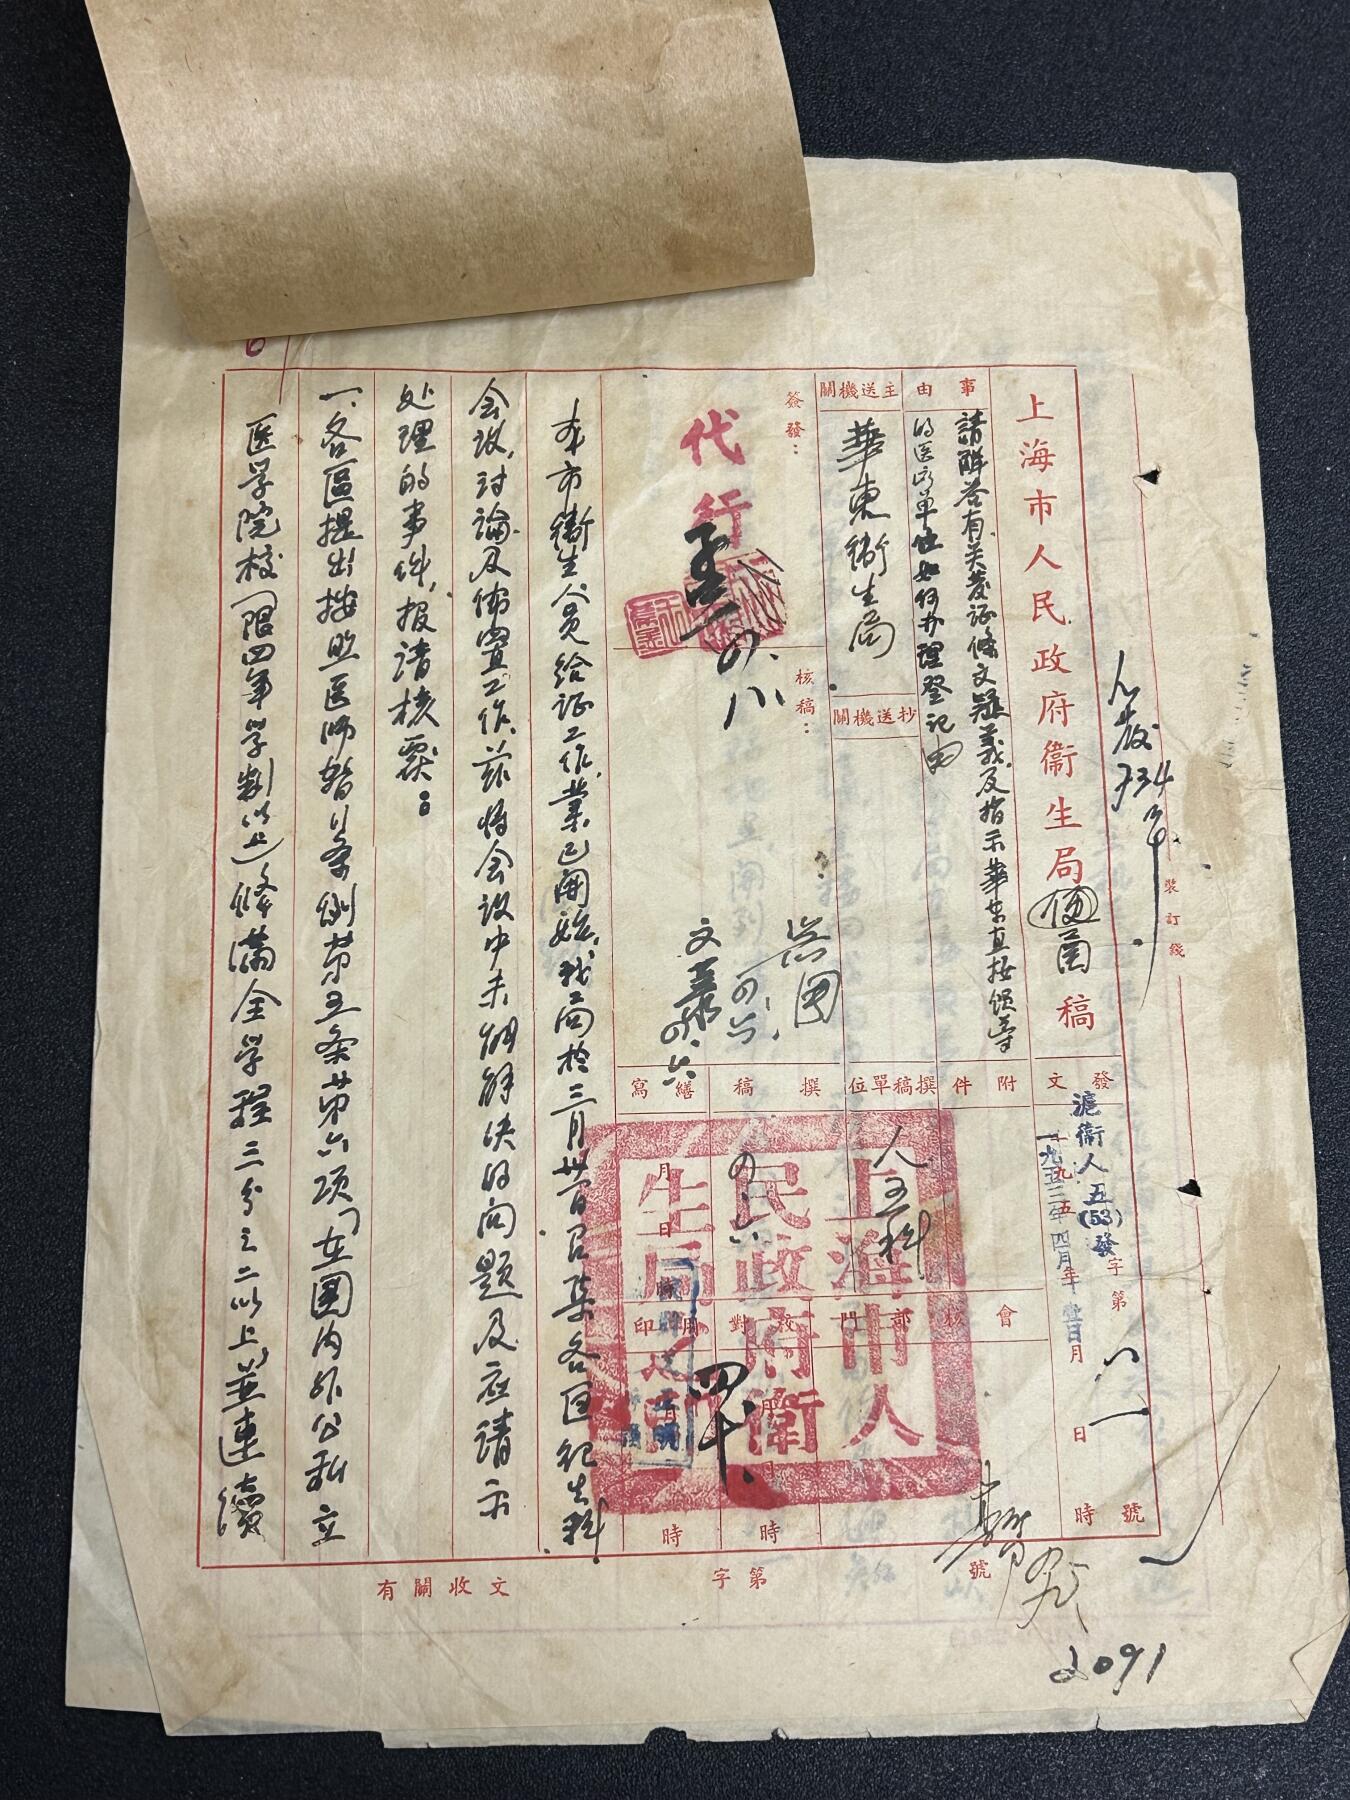 上海市人民政府衞生局便函稿
事由
請解答有关发证條文疑義及指示華东直接領导
的医疗單位如何办理登記由
主送機關
華東衞生局
抄送機關
簽發：
代行
四、八
核稿：
文
四、六
發文
滬衞人五(53)發字第八一號
一九五三年四月
附件
撰稿單位
人五科
撰稿
四、六
繕寫
月日
時
會核部門
校對
時
用印
四、十、
上海市人民政府衞生局之印
本市衞生人員給証工作，業已開始，我局於三月卅日召集各区衞生科
会议，討論及佈置工作，茲將会议中未能解决的问題及应請示
处理的事件，报請核覆：
一、各區提出按照医师暂行条例第五条第六項「在國内外公私立
医学院校(限四年学制以上)修滿全学程三分之二以上，並連續
裝訂綫
有關收文
字第
號
2091
6